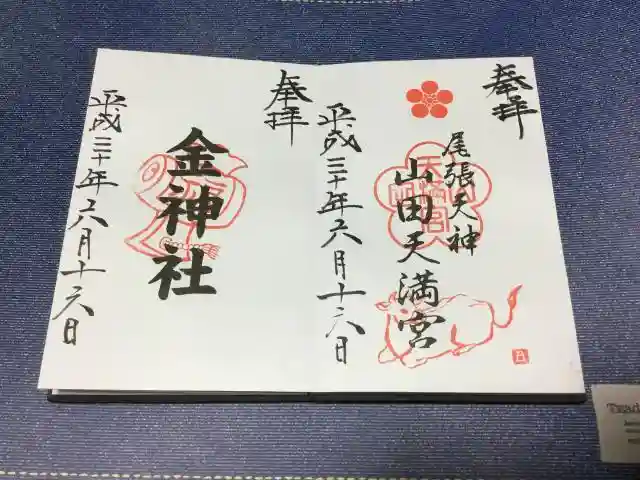 奉拝
尾張天神
山田天満宮
平成三十年六月十六日
天満宮
奉拝
金神社
平成三十年六月十六日
Trad